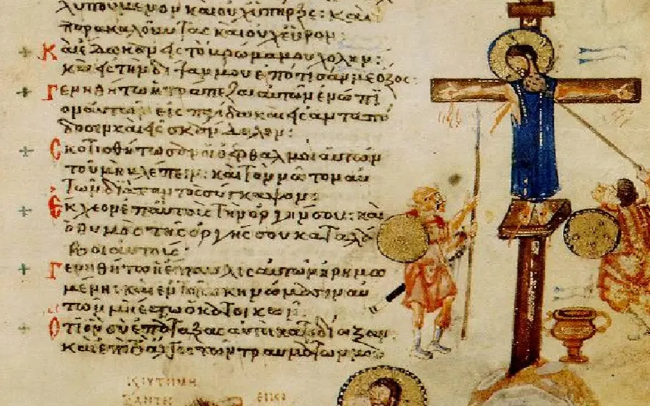 λυπούμενον καὶ οὐχ ὑπῆρξε: καὶ
παρακαλοῦντας καὶ οὐχ εὗρον:
Καὶ ἔδωκαν εἰς τὸ βρῶμά μου χολήν:
καὶ εἰς τὴν δίψαν μου ἐπότισάν με ὄξος:
Γενηθήτω ἡ τράπεζα αὐτῶν ἐνώπι
ον αὐτῶν εἰς παγίδα καὶ εἰς ἀνταπό
δοσιν καὶ εἰς σκάνδαλον:
Σκοτισθήτωσαν οἱ ὀφθαλμοὶ αὐτῶν
τοῦ μὴ βλέπειν: καὶ τὸν νῶτον αὐ
τῶν διὰ παντὸς σύγκαμψον:
Ἔκχεον ἐπ' αὐτοὺς τὴν ὀργήν σου: καὶ
ὁ θυμὸς τῆς ὀργῆς σου καταλά
βοι αὐτούς:
Γενηθήτω ἡ ἔπαυλις αὐτῶν ἠρημω
μένη: καὶ ἐν τοῖς σκηνώμασιν αὐ
τῶν μὴ ἔστω ὁ κατοικῶν:
Ὅτι ὃν σὺ ἐπάταξας αὐτοὶ κατεδίωξαν:
καὶ ἐπὶ τὸ ἄλγος τῶν τραυμάτων μου